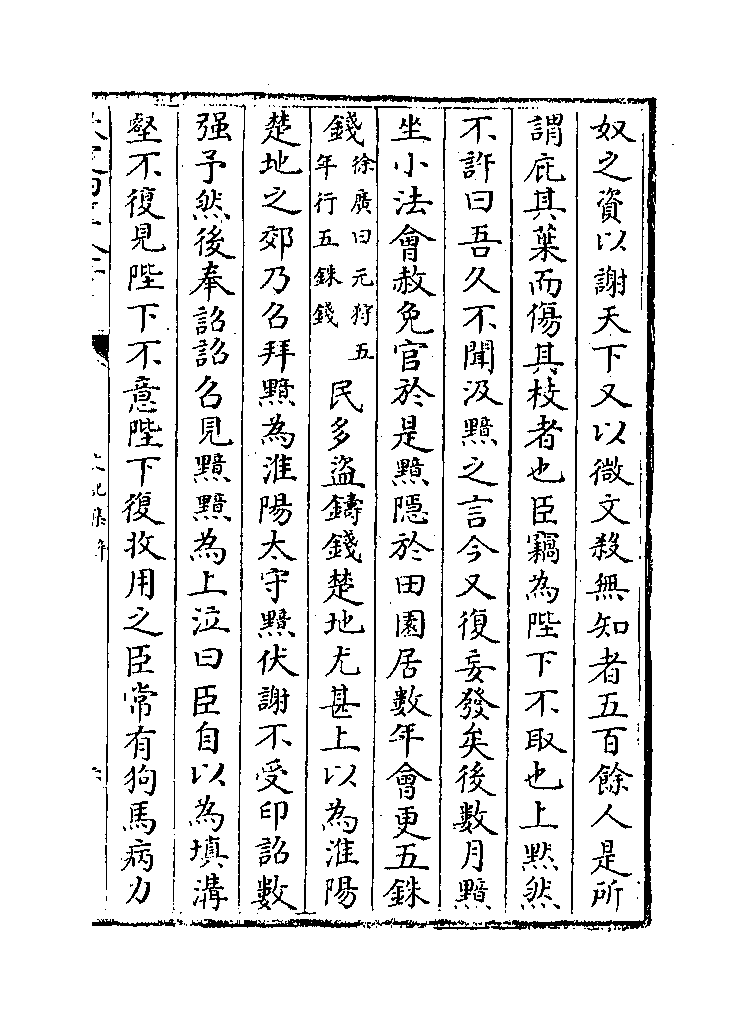 奴之資以謝天下又以微文殺無知者五百餘人是所
謂庇其葉而傷其枝者也臣竊為陛下不取也上黙然
不許曰吾久不聞汲黯之言今又復妄發矣後數月黯
坐小法會赦免官於是黯隱於田園居數年會更五銖
錢徐廣曰元狩五年行五銖錢民多盜鑄錢楚地尤甚上以為淮陽
楚地之郊乃召拜黯為淮陽太守黯伏謝不受印詔數
强予然後奉詔詔召見黯黯為上泣曰臣自以為填溝
壑不復見陛下不意陛下復收用之臣常有狗馬病力